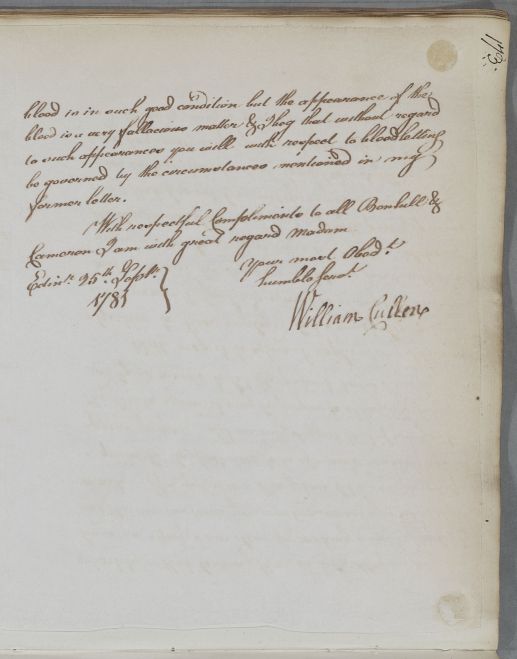 143.
blood is in such good condition but the appearance of the
blood is a very fallacious matter & I beg that without regard
to such appearances you will with respect to bloodletting
be governed by the circumstances mentioned in my
former letter.
With respectful Compliments to all Bonhill &
Cameron I am with great regard Madam
Your most Obedt.
humble Servt.
Edinr. 25th. Septr.
1781
William Cullen